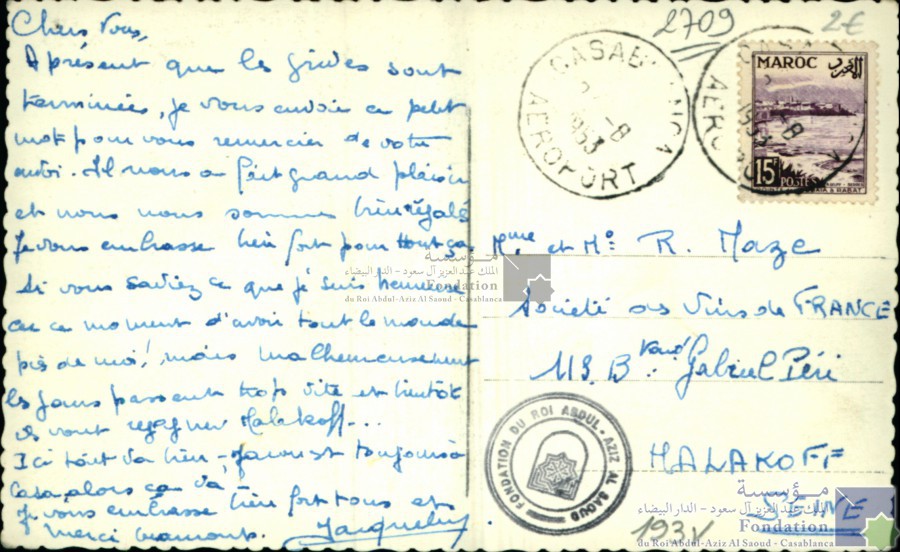 Chers Vous,
A présent que les grèves sont
terminées, je vous envoie ce petit
mot pour vous remercier de votre
. Il nous a fait grand plaisir
et nous nous sommes bien régalés
Je vous embrasse bien fort pour tout ça.
Si vous saviez ce que je suis heureuse
en ce moment d'avoir tout le monde
près de moi! mais malheureusement
les jours passent trop vite et bientôt
ils vont regagner Malakoff...
Ici tout va bien - est toujours à
Casa, alors ça va,
Je vous embrasse bien fort tous et
Merci beaucoup. Jacqueline
2709
2€
CASABLANCA
AEROPORT
-8
1953
MAROC
15F
POSTES
Mme et Mr R. Maze
Société des Vins de FRANCE
113. Bvard Gabriel Péri
MALAKOFF
SEINE
193V
FONDATION DU ROI ABDUL-AZIZ AL SAOUD
مؤسسة
الملك عبد العزيز آل سعود - الدار البيضاء
Fondation
du Roi Abdul-Aziz Al Saoud - Casablanca
مؤسسة
الملك عبد العزيز آل سعود - الدار البيضاء
Fondation
du Roi Abdul-Aziz Al Saoud - Casablanca